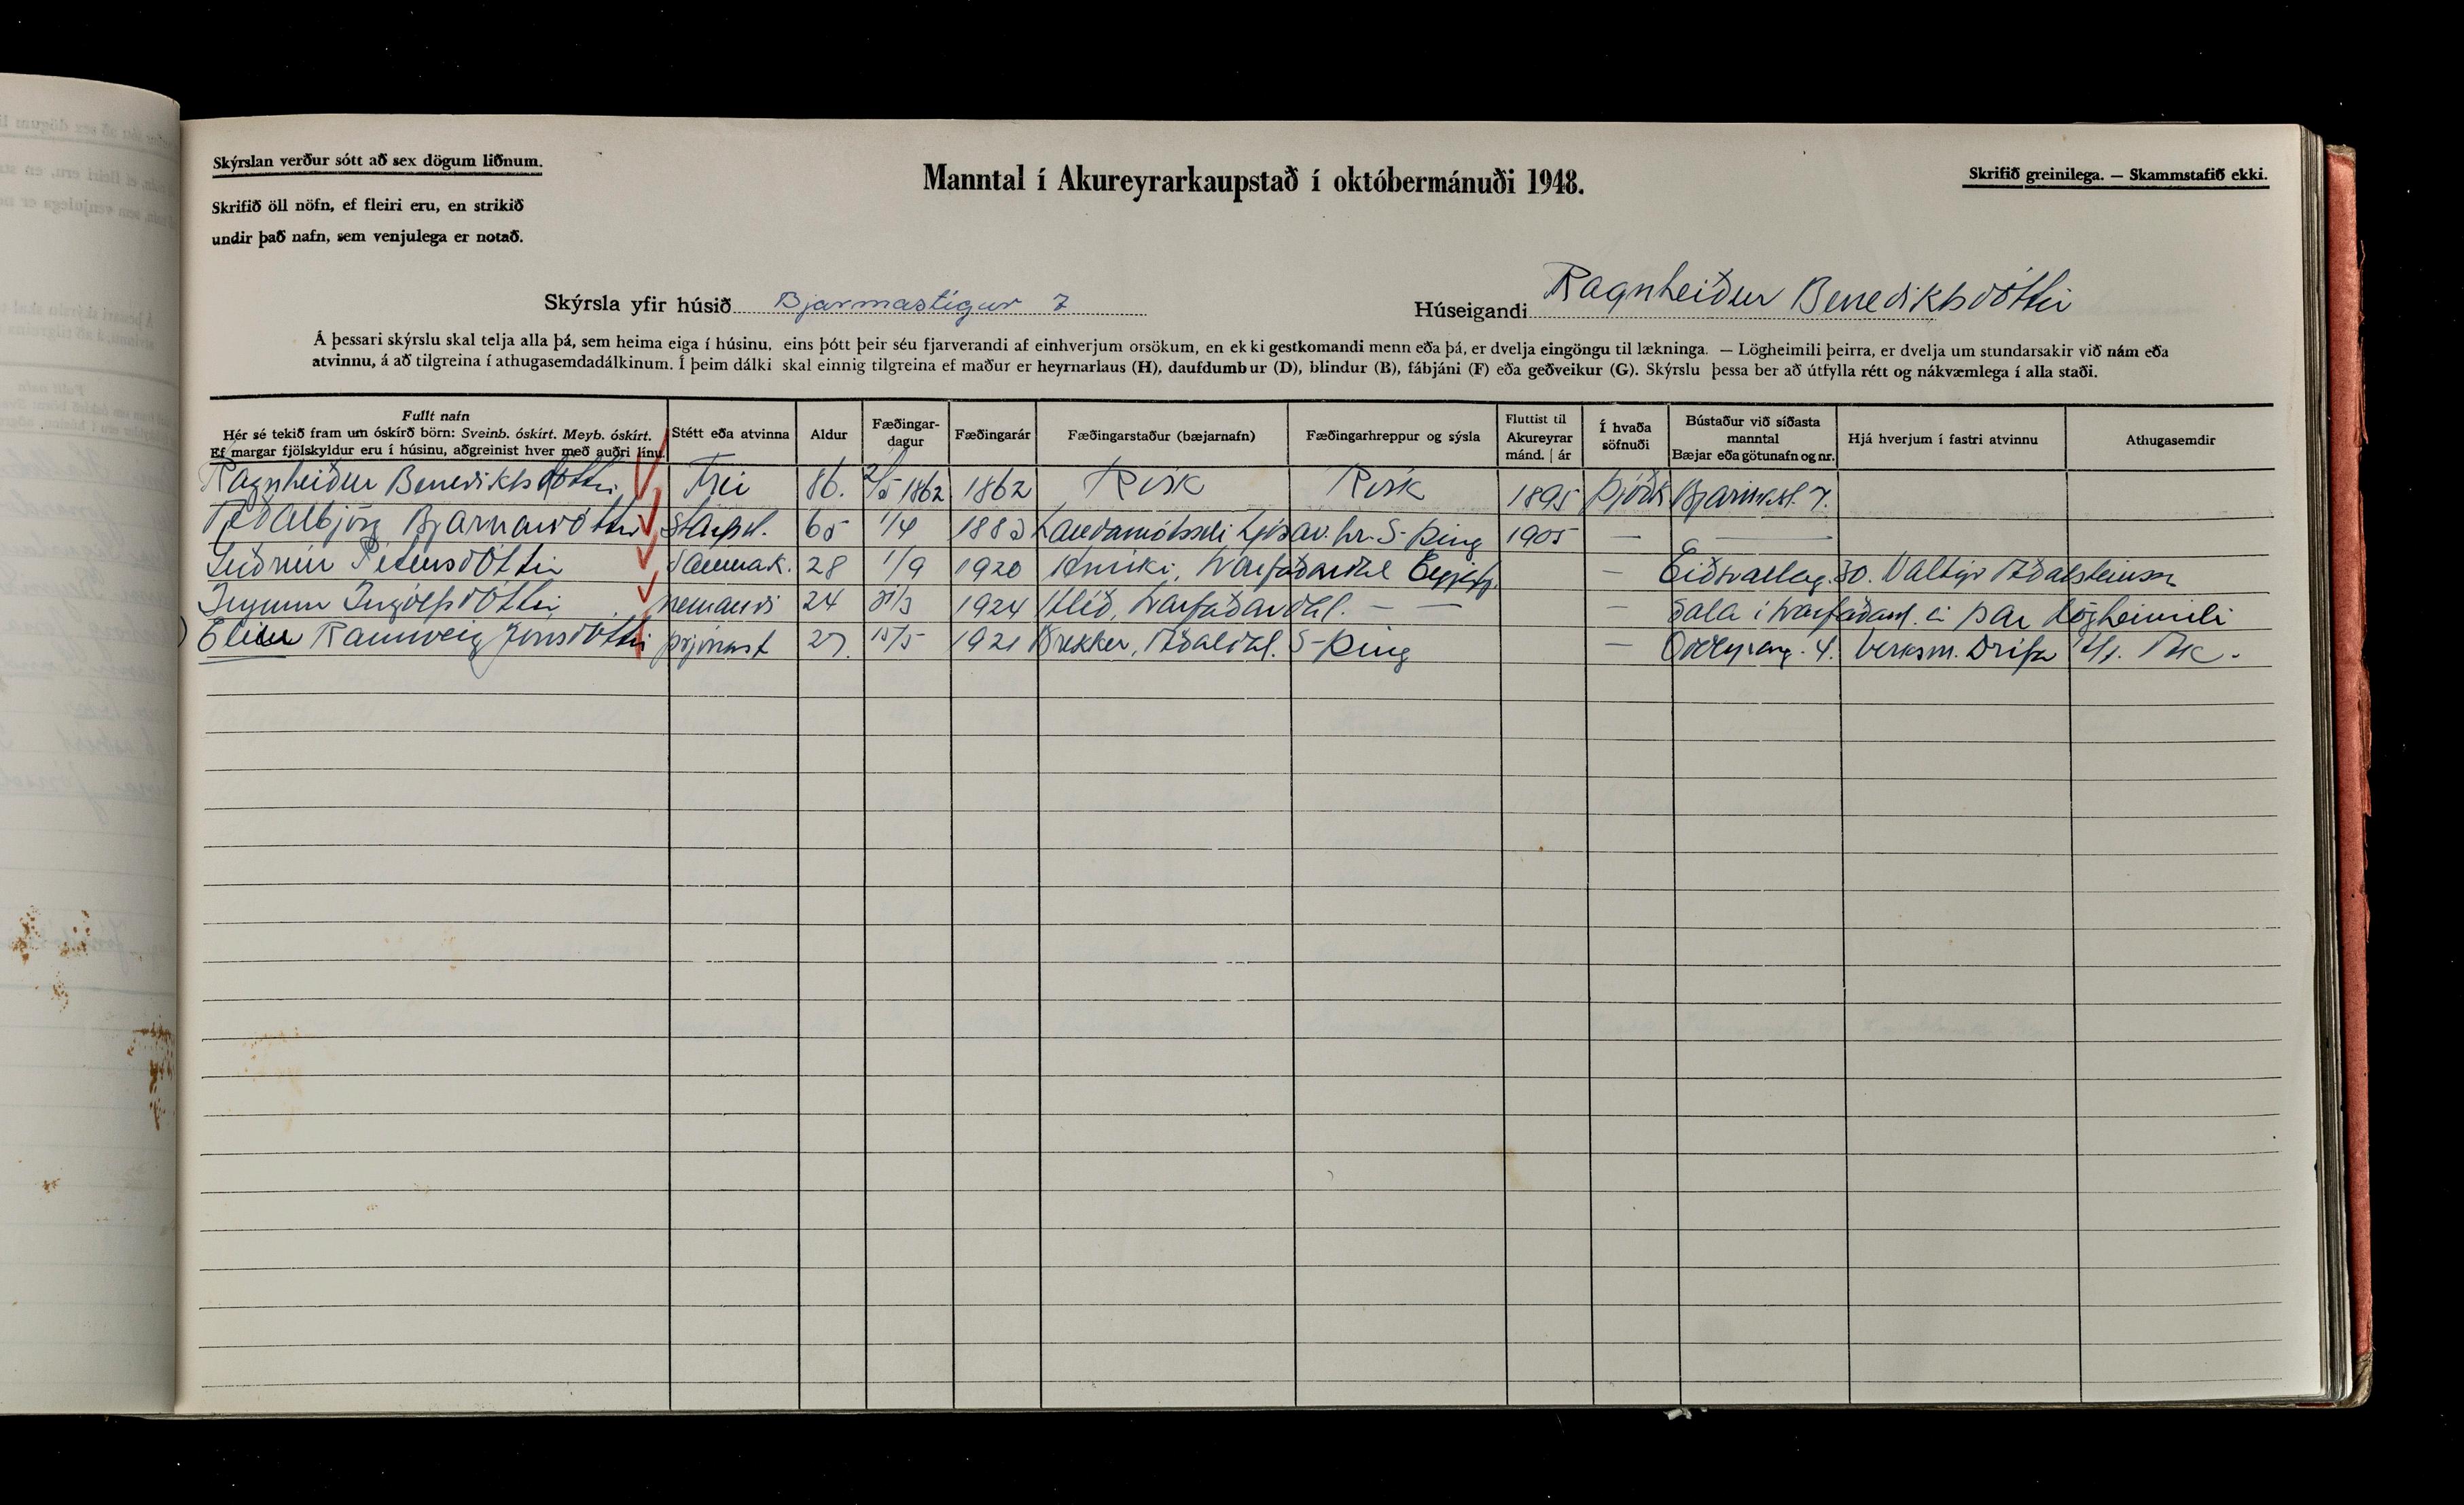 Skýrslan verður sótt að sex dögum liðnum.
Skrifið öll nöfn, ef fleiri eru, en strikið
undir það nafn, sem venjulega er notað.
Manntal í Akureyrarkaupstað í októbermánuði 1948.
Skrifið greinilega. — Skammstafið ekki.
Skýrsla yfir húsið Bjarmastígur 7
Húseigandi Ragnheiður Benediktsdóttir
Á þessari skýrslu skal telja alla þá, sem heima eiga í húsinu, eins þótt þeir séu fjarverandi af einhverjum orsökum, en ekki gestkomandi menn eða þá, er dvelja eingöngu til lækninga. — Lögheimili þeirra, er dvelja um stundarsakir við nám eða
atvinnu, á að tilgreina í athugasemdadálkinum. Í þeim dálki skal einnig tilgreina ef maður er heyrnarlaus (H), daufdumbur (D), blindur (B), fábjáni (F) eða geðveikur (G). Skýrslu þessa ber að útfylla rétt og nákvæmlega í alla staði.
Fullt nafn
Hér sé tekið fram um óskírð börn: Sveinb. óskírt. Meyb. óskírt.
Ef margar fjölskyldur eru í húsinu, aðgreinist hver með auðri línu.
Stétt eða atvinna
Aldur
Fæðingar-
dagur
Fæðingarár
Fæðingarstaður (bæjarnafn)
Fæðingarhreppur og sýsla
Fluttist til
Akureyrar
mánd. | ár
Í hvaða
söfnuði
Bústaður við síðasta
manntal
Bæjar eða götunafn og nr.
Hjá hverjum í fastri atvinnu
Athugasemdir
Ragnheiður Benediktsdóttir Frú 86. 2/5 1862 1862 1895 Þjóðk Bjarmast. 7.
Bjarnadóttir 65 1/4 1883 Landamótsseli Ljósav. hr. S-Þing 1905 —
Guðrún Pétursdóttir Saumak. 28 1/9 1920 Hnúki, Svarfaðardal Eyjafj. — Eiðsvallag. 30. Valtýr Aðalsteinsson
Ingunn Ingólfsdóttir nemandi 24 31/3 1924 Hlíð, Svarfaðardal. — — — Dala í Svarfaðard. á þar lögheimili
Elín Rannveig Jónsdóttir prjónast 27. 15/5 1921 Brekku, Aðaldal. S-Þing — Oddeyrarg. 4. Verksm. Drífa